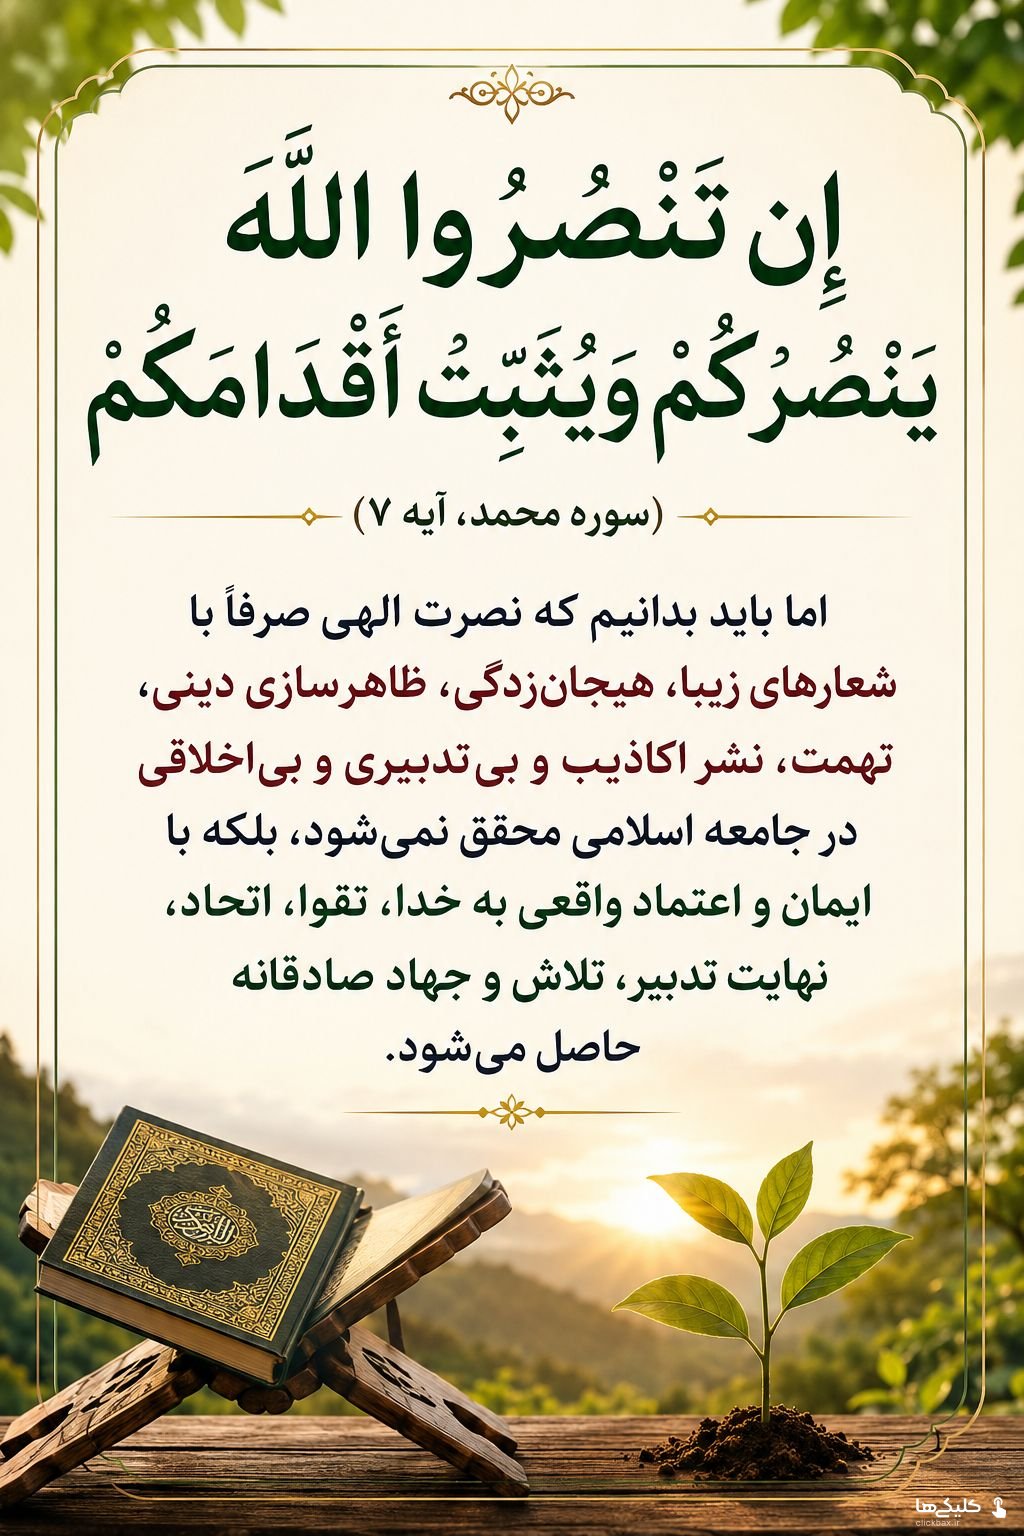 إِن تَنْصُرُوا اللَّهَ
يَنْصُرْكُمْ وَيُثَبِّتْ أَقْدَامَكُمْ
(سوره محمد، آیه ۷)
اما باید بدانیم که نصرت الهی صرفاً با
شعارهای زیبا، هیجان‌زدگی، ظاهرسازی دینی،
تهمت، نشر اکاذیب و بی‌تدبیری و بی‌اخلاقی
در جامعه اسلامی محقق نمی‌شود، بلکه با
ایمان و اعتماد واقعی به خدا، تقوا، اتحاد،
نهایت تدبیر، تلاش و جهاد صادقانه
حاصل می‌شود.
کلیکی‌ها
clickbax.ir